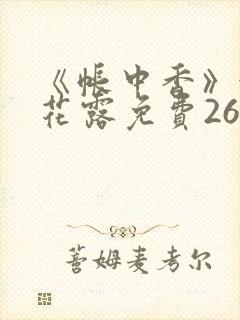 《帐中香》
花露免費26
蓍姆麦考尔